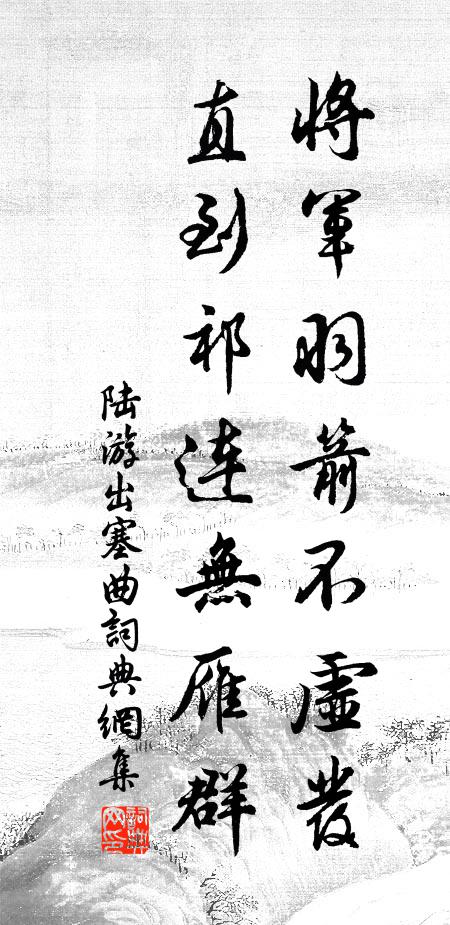 將軍羽箭不虛發
直到祁連無雁群
陆游出塞曲詞典網集